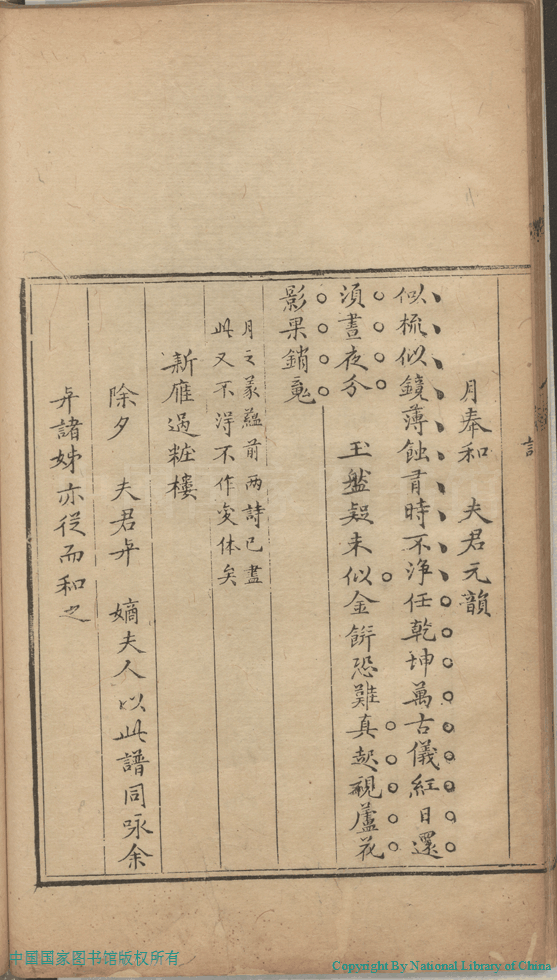 言
月奉和　夫君元韻
似梳似鏡薄蝕有時不淨任乾坤萬古儀紅日還
須晝夜分　玉盤疑未似金餅恐難真起視蘆花
影果銷魂
月之義蘊前两詩已盡
此又不淂不作変体矣
新雁過粧樓
除夕　夫君㢧　嫡夫人以此譜同咏余
㢧諸姊亦從而和之
中国国家图书馆版权所有
Copyright By National Library of China